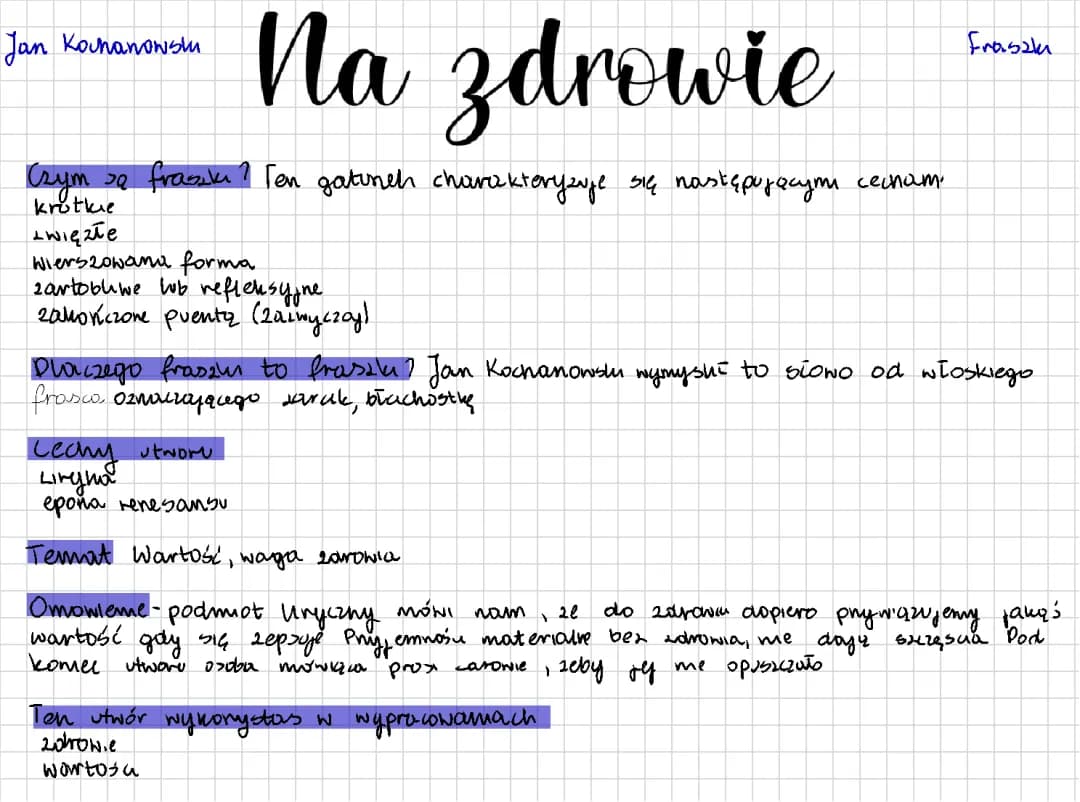 Jan Kochanowski
Na zdrowie
Fraszki
Czym są fraszki? Ten gatunek charakteryzuje się następującymi cechami
krótkie
zwięzłe
wierszowana forma
żartobliwe lub refleksyjne
zakończone puentą (zazwyczaj)
Dlaczego fraszki to fraszki? Jan Kochanowski wymyślił to słowo od włoskiego
frasca oznaczającego żarcik, błahostkę
Cechy utworu
Liryka
epoka renesansu
Temat Wartość, waga zdrowia
Omówienie - podmiot liryczny mówi nam, że do zdrowia dopiero przywiązujemy jakąś
wartość gdy się zepsuje Przyjemności materialne bez zdrowia, nie dają szczęścia Pod
koniec utworu osoba mówiąca prosi zdrowie, żeby jej nie opuszczało
Ten utwór wykorzystasz w wypracowaniach
zdrowie
wartości